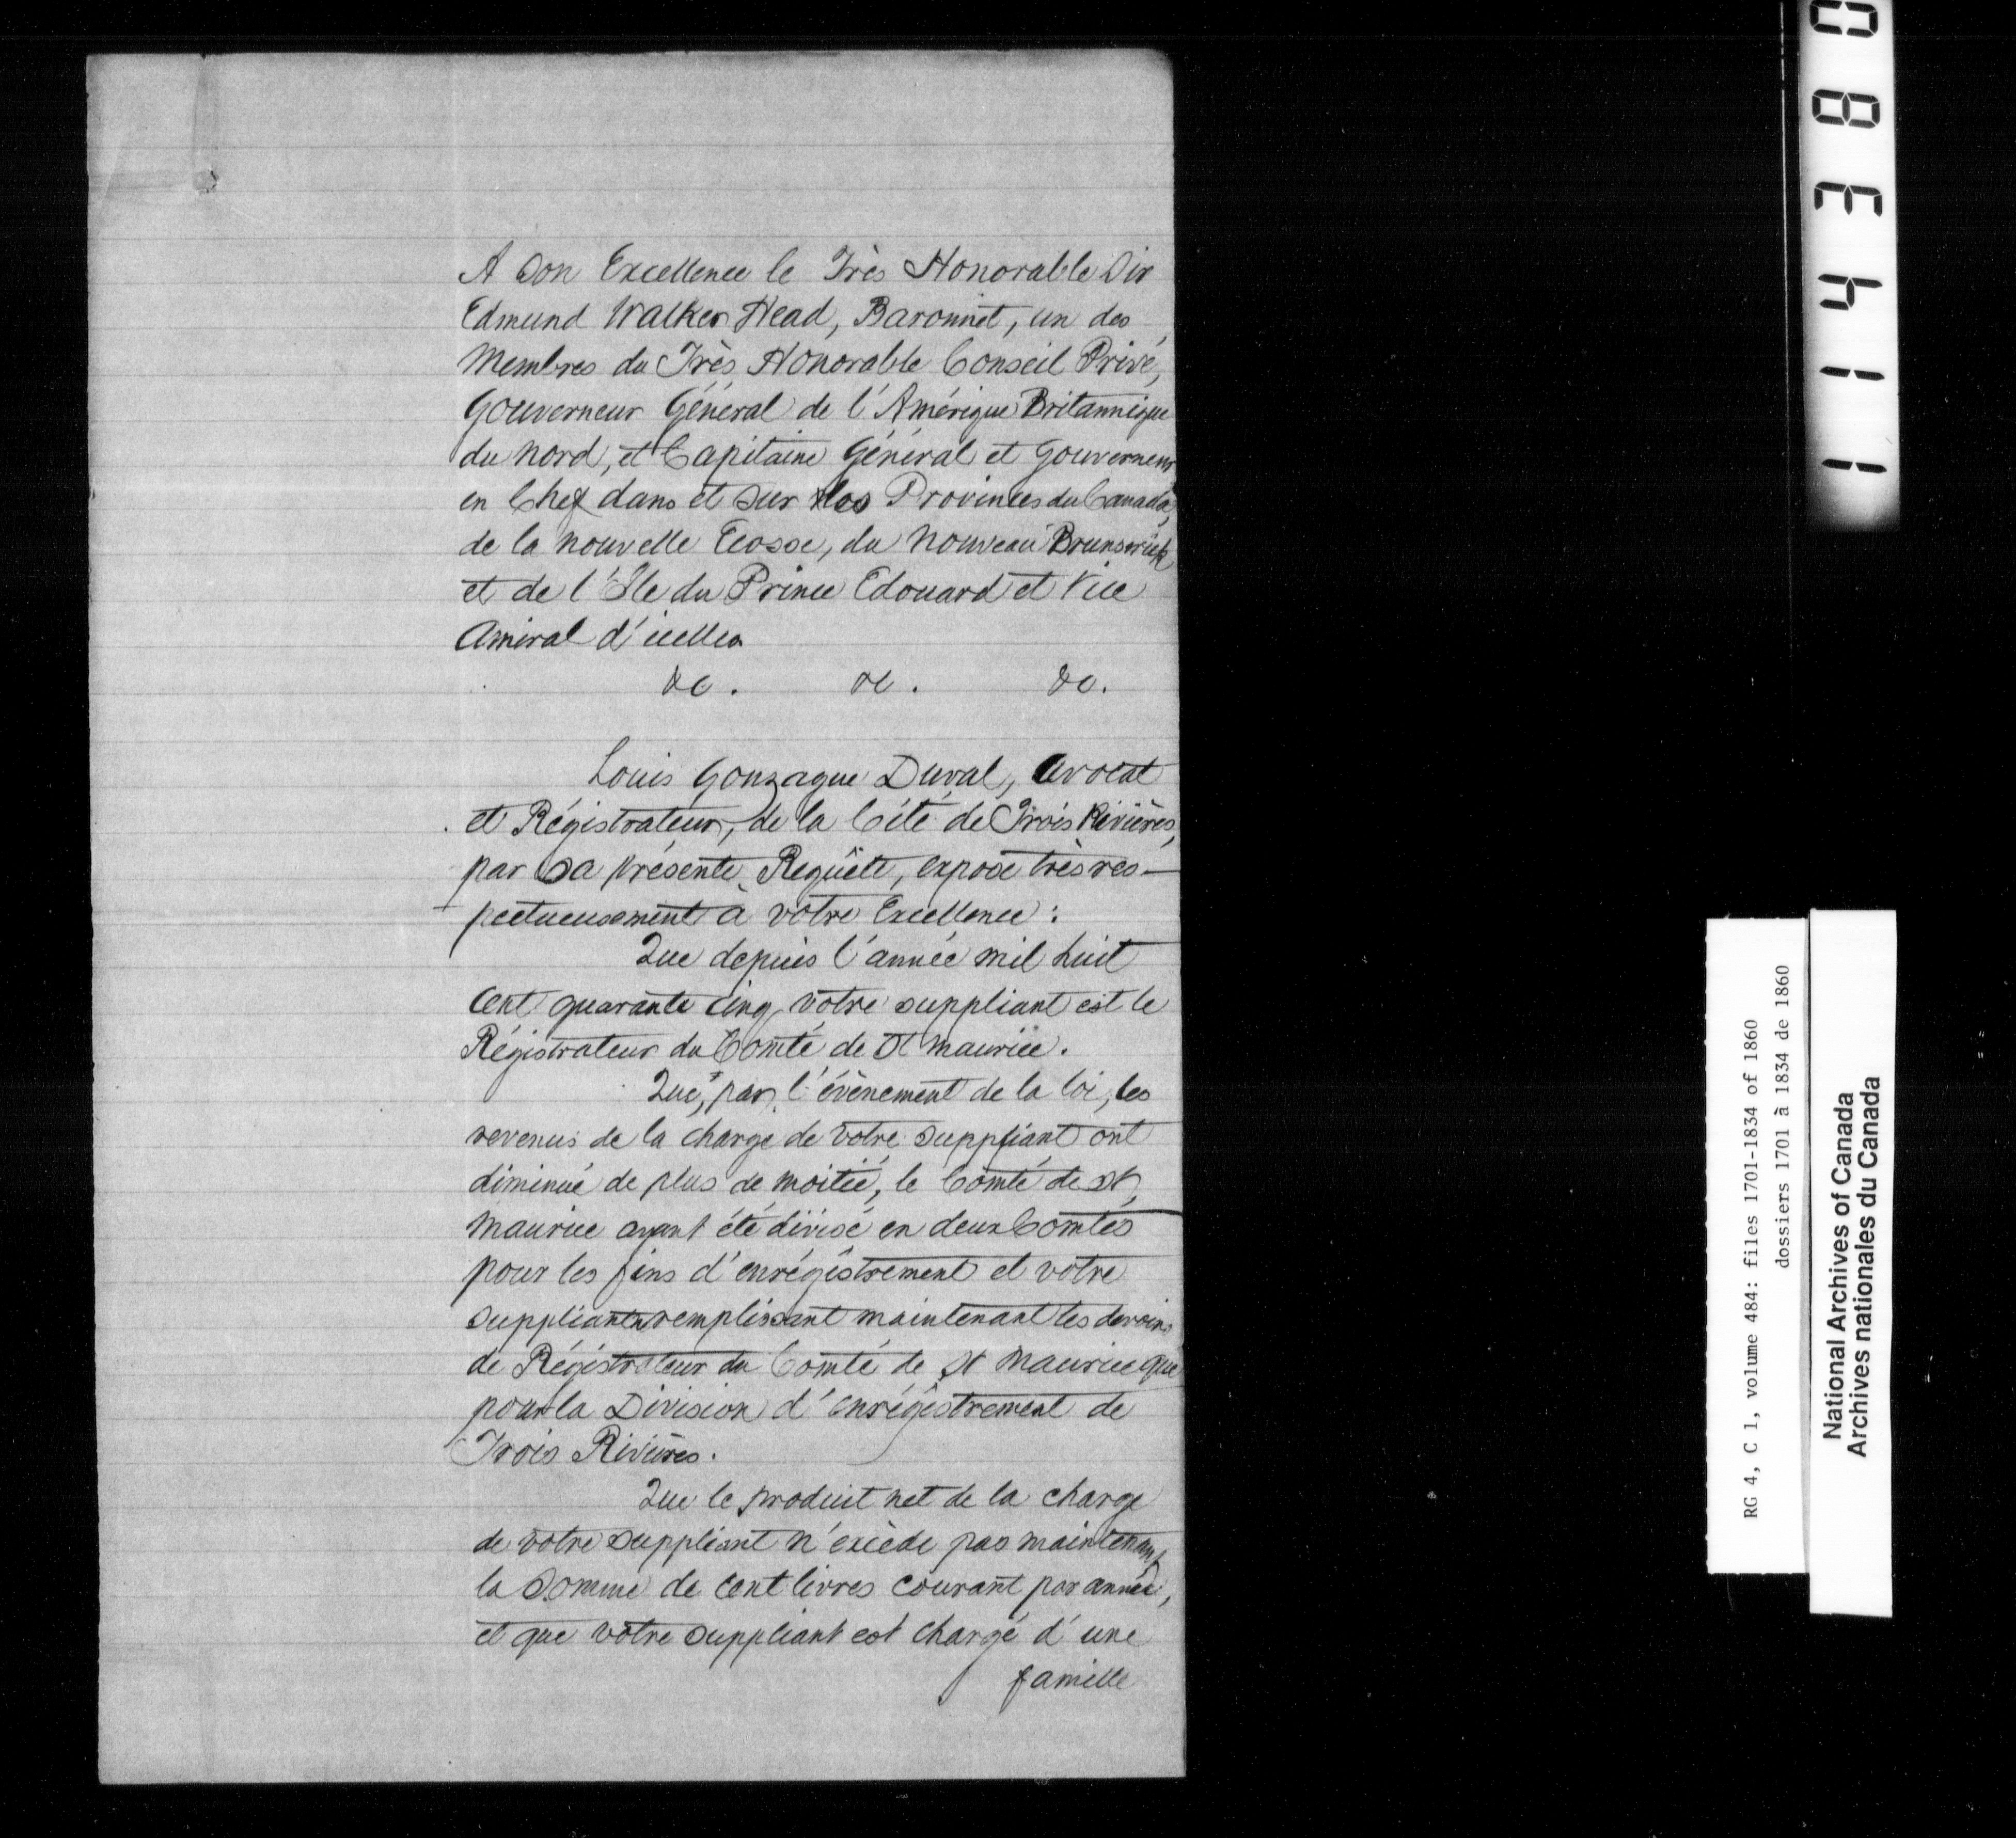 A Son Excellence le Très Honorable Sir
Edmund Walker Head, Baronnet, un des
Membres du Très Honorable Conseil Privé,
Gouverneur Général de l'Amérique Britannique
du nord, et Capitaine Général et Gouverneur
en Chef dans et sur les Provinces du Canada,
de la nouvelle Ecosse, du Nouveau Brunswick
et de l'Ile du Prince Edouard et Vice
Amiral d'icelles
&c. &c. &c.
Louis Gonzague Duval, Avocat
et Régistrateur, de la Cité de Trois Rivières,
par sa présente Requête, expose très res-
pectueusement à votre Excellence:
Que depuis l'année mil huit
Cent quarante cinq votre suppliant est le
Régistrateur du Comté de St Maurice.
Que, par l'évènement de la loi, les
revenus de la charge de votre Suppliant ont
diminué de plus de moitié, le Comté de St
Maurice ayant été divisé en deux Comtés
pour les fins d'enrégistrement et votre
suppliant remplissant maintenant les devoirs
de Régistrateur du Comté de St Maurice que
pour la Division d'enrégistrement de
Trois Rivières.
Que le produit net de la charge
de votre suppliant n'excède pas maintenant
la Somme de Cent livres courant par année,
et que votre suppliant est chargé d'une
famille
114380
RG 4, C 1, volume 484: files 1701-1834 of 1860
dossiers 1701 à 1834 de 1860
National Archives of Canada
Archives nationales du Canada